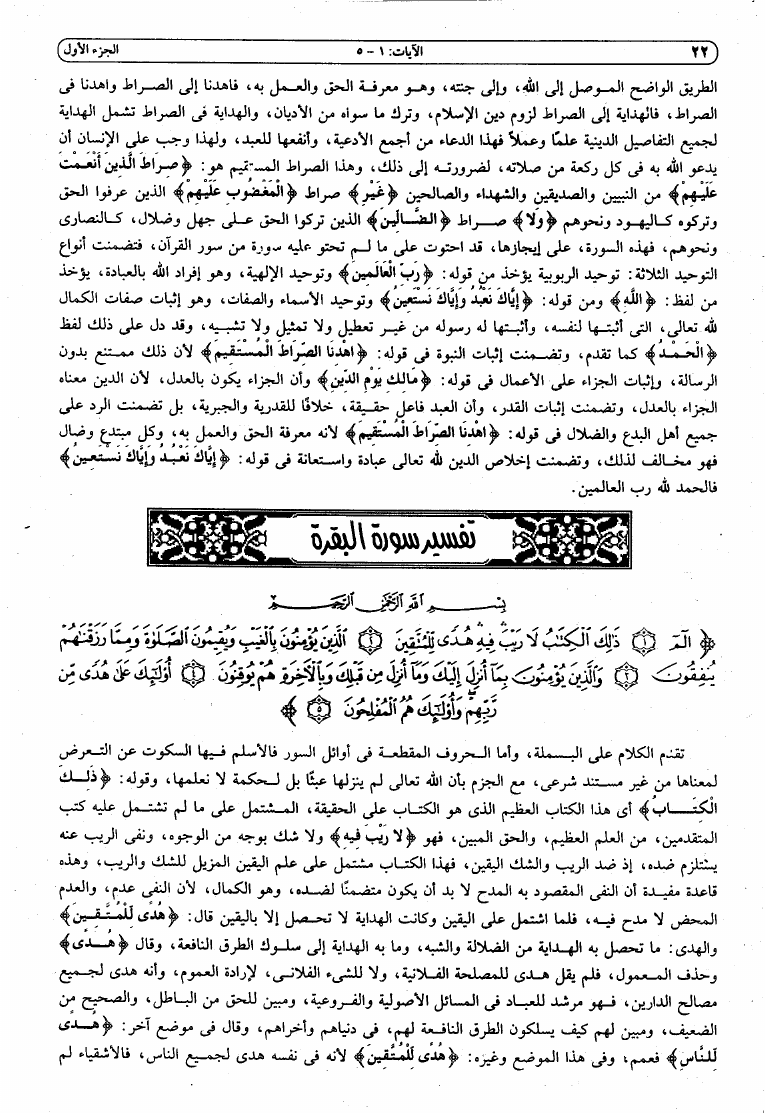 ٢٢ الآيات: ١ - ٥ الجزء الأول
الطريق الواضح الموصل إلى الله، وإلى جنته، وهو معرفة الحق والعمل به، فاهدنا إلى الصراط واهدنا فى
الصراط، فالهداية إلى الصراط لزوم دين الإسلام، وترك ما سواه من الأديان، والهداية فى الصراط تشمل الهداية
لجميع التفاصيل الدينية علمًا وعملاً فهذا الدعاء من أجمع الأدعية، وأنفعها للعبد، ولهذا وجب على الإنسان أن
يدعو الله به فى كل ركعة من صلاته، لضرورته إلى ذلك، وهذا الصراط المستقيم هو: ﴿صراط الَّذين أَنْعَمْتَ
عَلَيْهِمْ﴾ من النبيين والصديقين والشهداء والصالحين ﴿غَيْرِ﴾ صراط ﴿الْمَغْضُوبِ عَلَيْهِمْ﴾ الذين عرفوا الحق
وتركوه كاليهود ونحوهم ﴿وَلا﴾ صراط ﴿الضَّالِّينَ﴾ الذين تركوا الحق على جهل وضلال، كالنصارى
ونحوهم، فهذه السورة، على إيجازها، قد احتوت على ما لم تحتو عليه سورة من سور القرآن، فتضمنت أنواع
التوحيد الثلاثة: توحيد الربوبية يؤخذ من قوله: ﴿رَبِّ الْعَالَمِينَ﴾ وتوحيد الإلهية، وهو إفراد الله بالعبادة، يؤخذ
من لفظ: ﴿اللَّه﴾ ومن قوله: ﴿إِيَّاكَ نَعْبُدُ وَإِيَّاكَ نَسْتَعِينُ﴾ وتوحيد الأسماء والصفات، وهو إثبات صفات الكمال
لله تعالى، التى أثبتها لنفسه، وأثبتها له رسوله من غير تعطيل ولا تمثيل ولا تشبيه، وقد دل على ذلك لفظ
﴿الْحَمْدُ﴾ كما تقدم، وتضمنت إثبات النبوة فى قوله: ﴿اهْدِنَا الصِّرَاطَ الْمُسْتَقِيمَ﴾ لأن ذلك ممتنع بدون
الرسالة، وإثبات الجزاء على الأعمال فى قوله: ﴿مَالِكِ يَوْمِ الدِّينِ﴾ وأن الجزاء يكون بالعدل، لأن الدين معناه
الجزاء بالعدل، وتضمنت إثبات القدر، وأن العبد فاعل حقيقة، خلافًا للقدرية والجبرية، بل تضمنت الرد على
جميع أهل البدع والضلال فى قوله: ﴿اهْدِنَا الصِّرَاطَ الْمُسْتَقِيمَ﴾ لأنه معرفة الحق والعمل به، وكل مبتدع وضال
فهو مخالف لذلك، وتضمنت إخلاص الدين لله تعالى عبادة واستعانة فى قوله: ﴿إِيَّاكَ نَعْبُدُ وَإِيَّاكَ نَسْتَعِينُ﴾
فالحمد لله رب العالمين.
تفسير سورة البقرة
بِسْمِ اللَّهِ الرَّحْمَٰنِ الرَّحِيمِ
﴿ الٓمٓ ١ ذَٰلِكَ الْكِتَٰبُ لَا رَيْبَ فِيهِ هُدًى لِّلْمُتَّقِينَ ٢ الَّذِينَ يُؤْمِنُونَ بِالْغَيْبِ وَيُقِيمُونَ الصَّلَوٰةَ وَمِمَّا رَزَقْنَٰهُمْ
يُنفِقُونَ ٣ وَالَّذِينَ يُؤْمِنُونَ بِمَا أُنزِلَ إِلَيْكَ وَمَا أُنزِلَ مِن قَبْلِكَ وَبِالْآخِرَةِ هُمْ يُوقِنُونَ ٤ أُوْلَٰئِكَ عَلَىٰ هُدًى مِّن
رَّبِّهِمْ وَأُوْلَٰئِكَ هُمُ الْمُفْلِحُونَ ٥ ﴾
تقدم الكلام على البسملة، وأما الحروف المقطعة فى أوائل السور فالأسلم فيها السكوت عن التعرض
لمعناها من غير مستند شرعى، مع الجزم بأن الله تعالى لم ينزلها عبثًا بل لحكمة لا نعلمها، وقوله: ﴿ذَلِكَ
الْكِتَابُ﴾ أى هذا الكتاب العظيم الذى هو الكتاب على الحقيقة، المشتمل على ما لم تشتمل عليه كتب
المتقدمين، من العلم العظيم، والحق المبين، فهو ﴿لا رَيْبَ فِيهِ﴾ ولا شك بوجه من الوجوه، ونفى الريب عنه
يستلزم ضده، إذ ضد الريب والشك اليقين، فهذا الكتاب مشتمل على علم اليقين المزيل للشك والريب، وهذه
قاعدة مفيدة أن النفى المقصود به المدح لا بد أن يكون متضمنًا لضده، وهو الكمال، لأن النفى عدم، والعدم
المحض لا مدح فيه، فلما اشتمل على اليقين وكانت الهداية لا تحصل إلا باليقين قال: ﴿هُدًى لِلْمُتَّقِينَ﴾
والهدى: ما تحصل به الهداية من الضلالة والشبه، وما به الهداية إلى سلوك الطرق النافعة، وقال ﴿هُدًى﴾
وحذف المعمول، فلم يقل هدى للمصلحة الفلانية، ولا للشىء الفلانى، لإرادة العموم، وأنه هدى لجميع
مصالح الدارين، فهو مرشد للعباد فى المسائل الأصولية والفروعية، ومبين للحق من الباطل، والصحيح من
الضعيف، ومبين لهم كيف يسلكون الطرق النافعة لهم، فى دنياهم وأخراهم، وقال فى موضع آخر: ﴿هُدًى
لِلنَّاسِ﴾ فعمم، وفى هذا الموضع وغيره: ﴿هُدًى لِلْمُتَّقِينَ﴾ لأنه فى نفسه هدى لجميع الناس، فالأشقياء لم